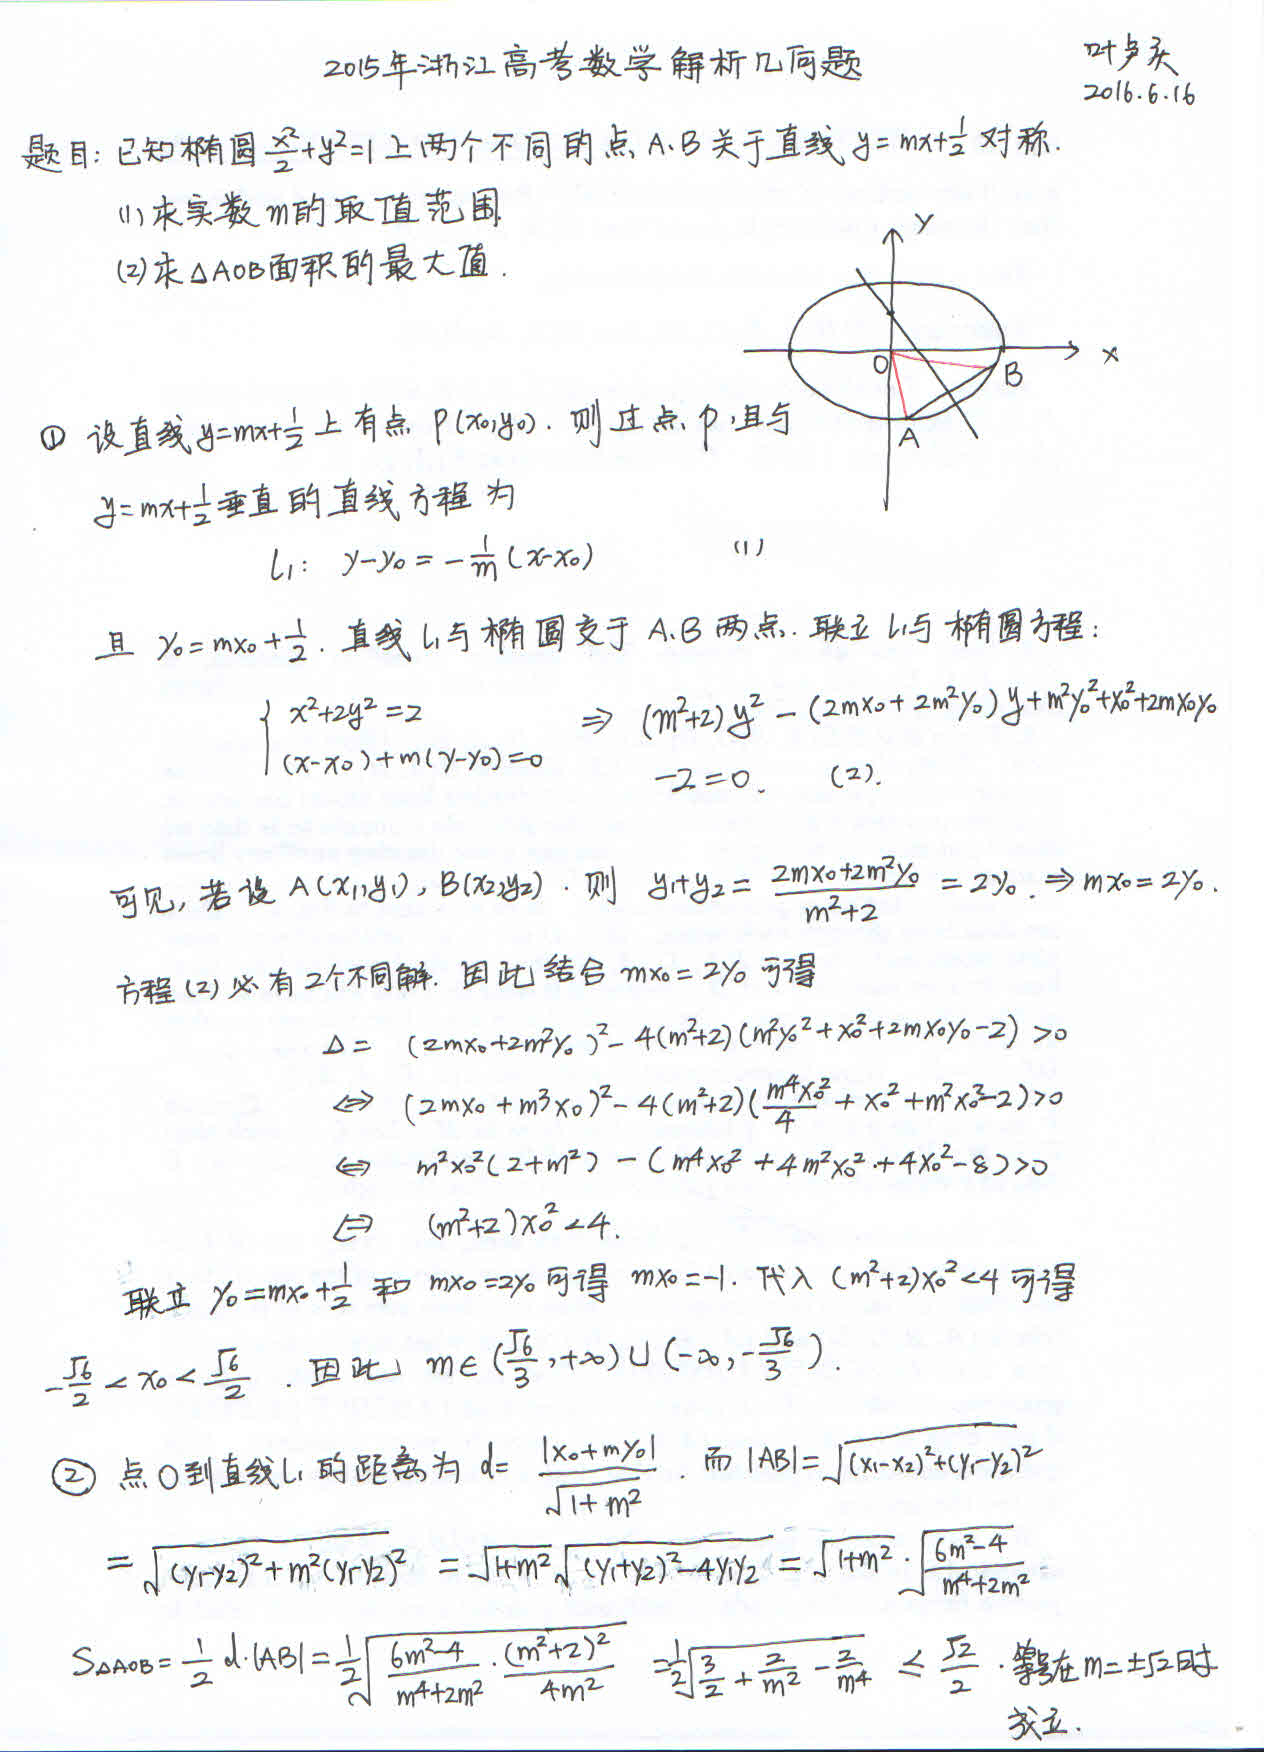 2015年浙江高考数学解析几何题
叶卢庆
2016.6.16
题目: 已知椭圆 x²/2+y²=1 上两个不同的点 A、B 关于直线 y=mx+1/2 对称.
(1) 求实数 m 的取值范围.
(2) 求 △AOB 面积的最大值.
Y
O
B
X
A
① 设直线 y=mx+1/2 上有点 P(x₀,y₀). 则过点 P, 且与
y=mx+1/2 垂直的直线方程为
l₁: y-y₀ = -1/m (x-x₀) (1)
且 y₀=mx₀+1/2. 直线 l₁ 与椭圆交于 A、B 两点. 联立 l₁ 与椭圆方程:
{ x²+2y²=2 ⇒ (m²+2)y² - (2mx₀+2m²y₀)y + m²y₀²+x₀²+2mx₀y₀
(x-x₀)+m(y-y₀)=0 -2=0. (2).
可见, 若设 A(x₁,y₁), B(x₂,y₂). 则 y₁+y₂ = (2mx₀+2m²y₀)/(m²+2) = 2y₀. ⇒ mx₀=2y₀.
方程(2)必有2个不同解. 因此结合 mx₀=2y₀ 可得
Δ = (2mx₀+2m²y₀)² - 4(m²+2)(m²y₀²+x₀²+2mx₀y₀-2) >0
⇔ (2mx₀+m³x₀)² - 4(m²+2)(m⁴x₀²/4 + x₀² + m²x₀²-2)>0
⇔ m²x₀²(2+m²) - (m⁴x₀²+4m²x₀²+4x₀²-8)>0
⇔ (m²+2)x₀²<4.
联立 y₀=mx₀+1/2 和 mx₀=2y₀ 可得 mx₀=-1. 代入 (m²+2)x₀²<4 可得
-√6/2 < x₀ < √6/2. 因此 m∈(√6/3, +∞)∪(-∞, -√6/3).
② 点O到直线 l₁ 的距离为 d= |x₀+my₀|/√(1+m²). 而 |AB|=√((x₁-x₂)²+(y₁-y₂)²)
= √((y₁-y₂)²+m²(y₁-y₂)²) = √(1+m²) √((y₁+y₂)²-4y₁y₂) = √(1+m²) · √((6m²-4)/(m⁴+2m²))
S△AOB = 1/2 d·|AB| = 1/2 √((6m²-4)/(m⁴+2m²) · (m²+2)²/(4m²)) = 1/2 √(3/2 + 2/m² - 2/m⁴) ≤ √2/2. 等号在 m=±√2 时
成立.